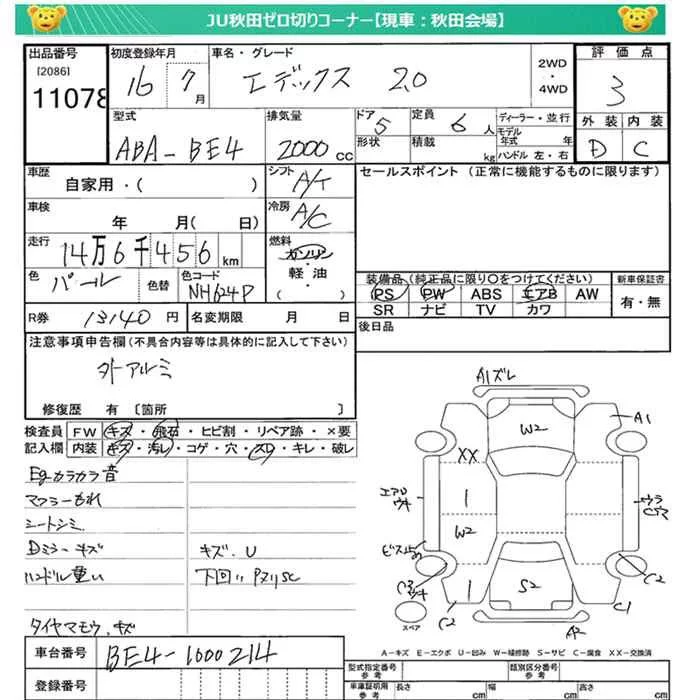 JU秋田ゼロ切りコーナー【現車：秋田会場】
出品番号 初度登録年月 車名・グレード 評価点
[2086]
11078 16 7月 エディックス 2.0 2WD・4WD 3
型式 排気量 ドア 定員 ディーラー・並行 外装 内装
ABA-BE4 2000cc 5 6人 モデル年式 年 D C
形状 積載 kg ハンドル 左・右
車歴 シフト セールスポイント（正常に機能するものに限ります）
自家用・（ ） A/T
車検 年 月（ 日） 冷房 A/C
走行 14万6千456km 燃料 ガソリン・軽油・（ ）
色 パール 色替 色コード NH624P
装備品（純正品に限り○をつけてください） 新車保証書
PS PW ABS エアB AW 有・無
SR ナビ TV カワ
R券 13140円 名変期限 月 日 後日品
注意事項申告欄（不具合内容等は具体的に記入して下さい）
外アルミ
修復歴 有 〔箇所 〕
検査員 FW キズ・飛石・ヒビ割・リペア跡・×要
記入欄 内装 キズ・汚レ・コゲ・穴・スレ・キレ・破レ
Egカラカラ音
マフラーもれ
シートシミ
Dミラーキズ キズ.U
ハンドル重い 下回り
タイヤマモウ.キズ
A1ズレ
W2
A1
XX
エアロ
ウキ
W2
ウラ
C2
C2
S2
C1
C2
A2
スペア
A-キズ E-エクボ U-凹み W-補修跡 S-サビ C-腐食 XX-交換済
車台番号 BE4-1000214
登録番号
型式指定番号 参考 類別区分番号 参考
車庫証明用 参考 長さ cm 幅 cm 高さ cm